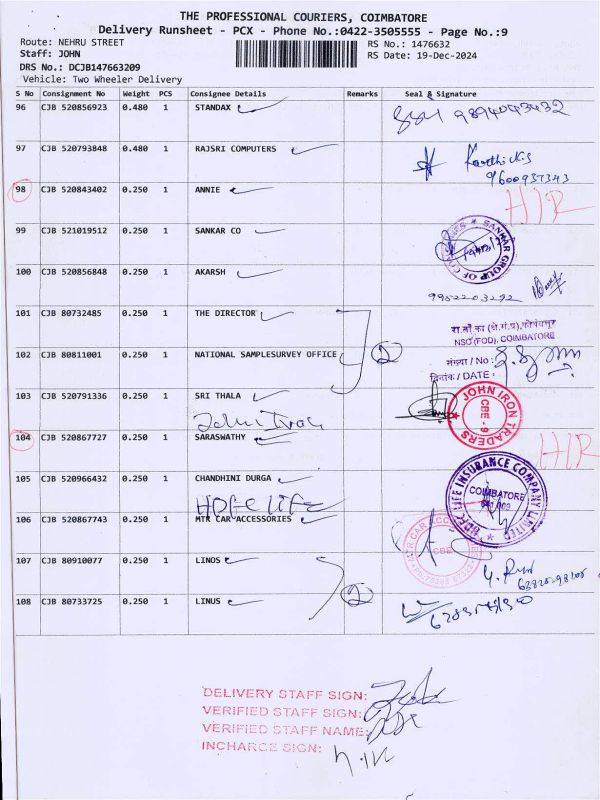 THE PROFESSIONAL COURIERS, COIMBATORE
Delivery Runsheet - PCX - Phone No.:0422-3505555 - Page No.:9
Route: NEHRU STREET
Staff: JOHN
DRS No.: DCJB147663209
Vehicle: Two Wheeler Delivery
RS No.: 1476632
RS Date: 19-Dec-2024
S No Consignment No Weight PCS Consignee Details Remarks Seal & Signature
96 CJB 520856923 0.480 1 STANDAX 9894043432
97 CJB 520793848 0.480 1 RAJSRI COMPUTERS Karthick.s
9600937343
98 CJB 520843402 0.250 1 ANNIE HIR
99 CJB 521019512 0.250 1 SANKAR CO SANKAR GROUP OF
100 CJB 520856848 0.250 1 AKARSH
9952203292
101 CJB 80732485 0.250 1 THE DIRECTOR
NSO (FOD), COIMBATORE
102 CJB 80811001 0.250 1 NATIONAL SAMPLESURVEY OFFICE 2 संख्या / No :
दिनांक / DATE :
103 CJB 520791336 0.250 1 SRI THALA JOHN IRON TRADERS CBE - 9
John Iron
104 CJB 520867727 0.250 1 SARASWATHY HIR
105 CJB 520966432 0.250 1 CHANDHINI DURGA HDFC LIFE INSURANCE COMPANY LIMITED COIMBATORE
HDFC LIFE
106 CJB 520867743 0.250 1 MTR CAR ACCESSORIES CAR CBE
107 CJB 80910077 0.250 1 LINOS
108 CJB 80733725 0.250 1 LINUS 2
DELIVERY STAFF SIGN:
VERIFIED STAFF SIGN:
VERIFIED STAFF NAME:
INCHARGE SIGN: